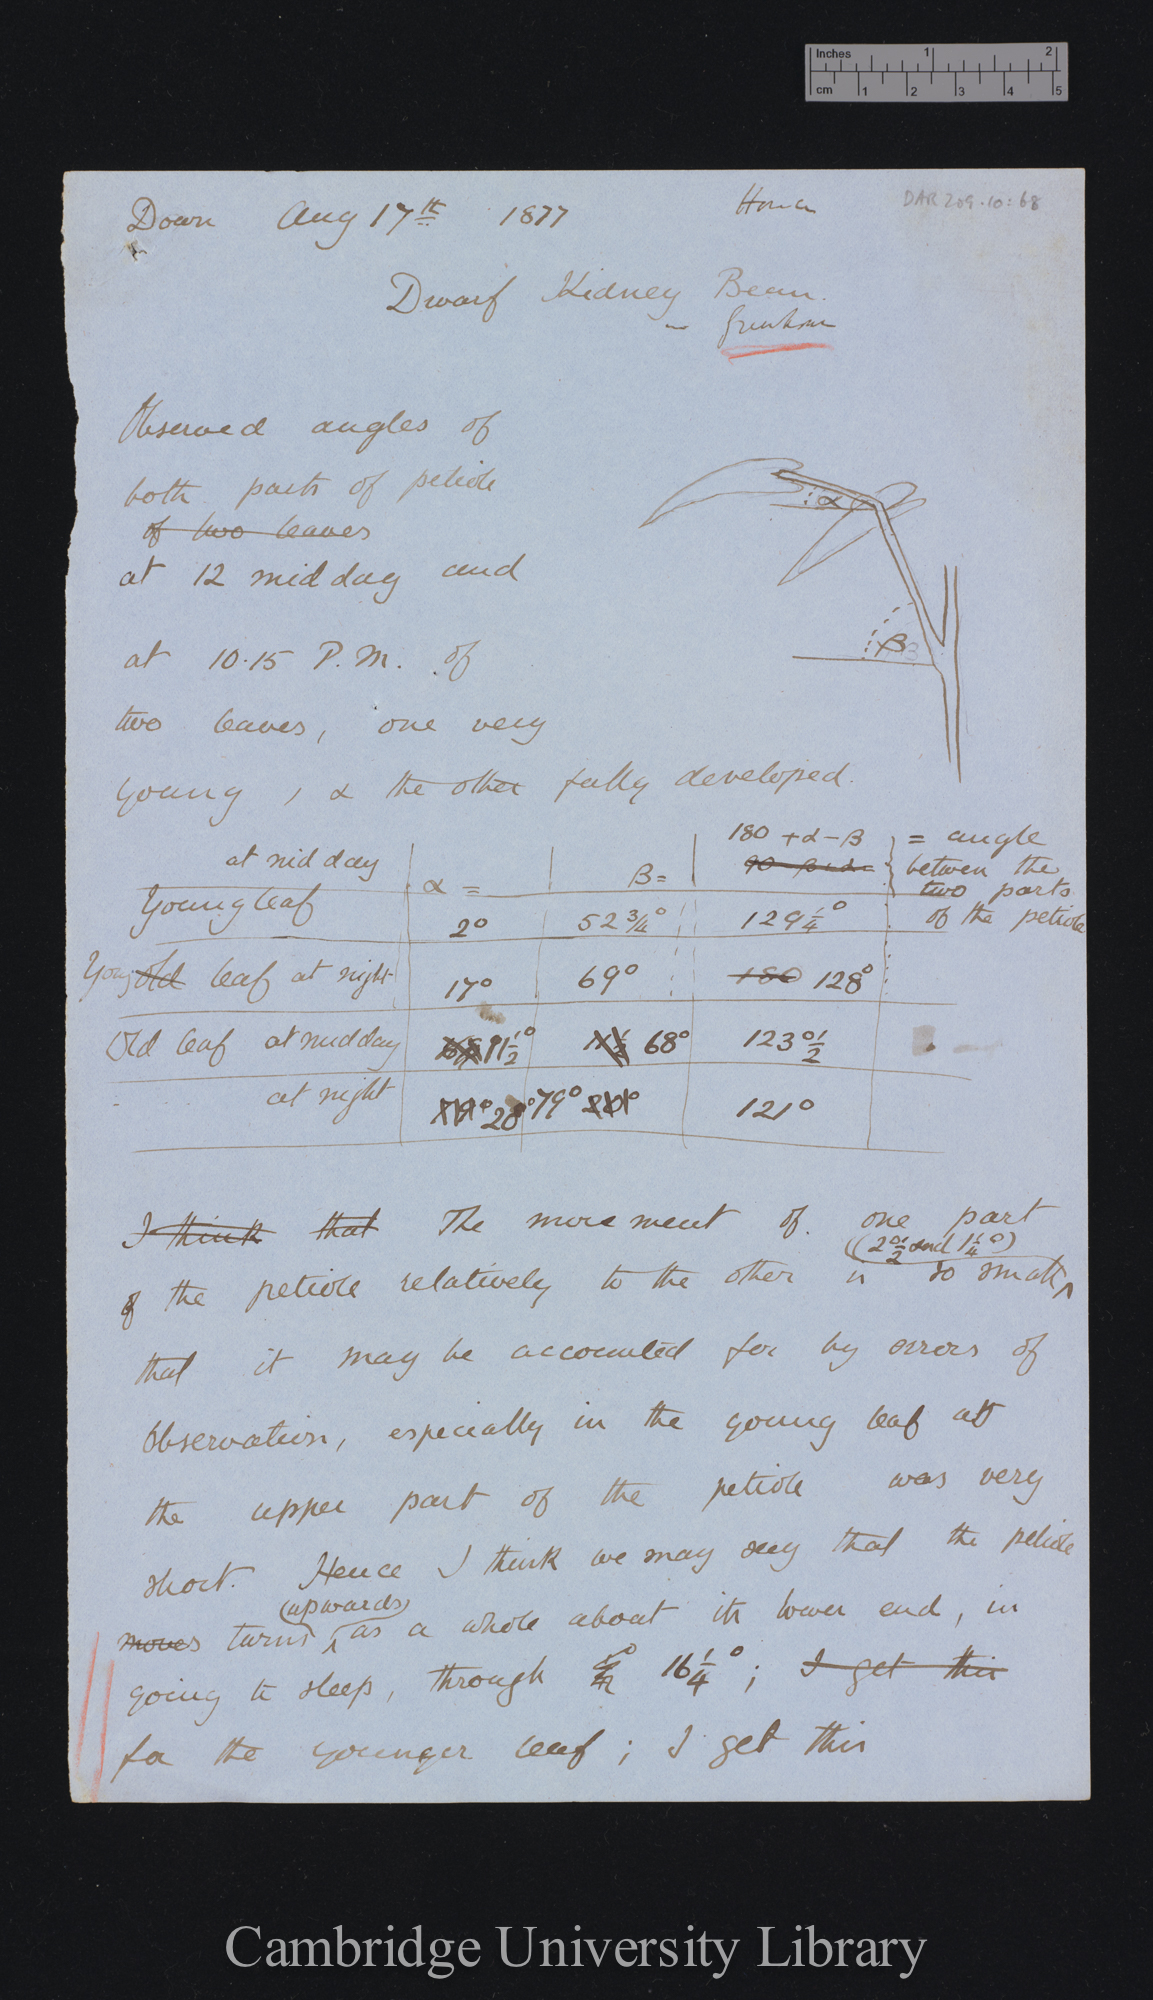 Inches 1 2
cm 1 2 3 4 5
Down Aug 17th 1877
DAR 209.10:68
Dwarf Kidney Bean.
Observed angles of
both parts of petiole
of two leaves
at 12 mid day and
at 10.15 P.M. of
two leaves, one very
young, & the other fully developed.
α
β
at mid day α = β = 180 + α - β = angle
between the
two parts
of the petiole
Young leaf 2° 52 3/4° 129 1/4°
Young old leaf at night 17° 69° 180 128°
Old leaf at midday 11 1/2° 11 1/2 68° 123° 1/2
at night 28° 79° 121°
I think that The movement of one part
(2° 1/2 and 1 1/4°)
of the petiole relatively to the other is so small
that it may be accounted for by errors of
observation, especially in the young leaf as
the upper part of the petiole was very
short. Hence I think we may say that the petiole
(upwards)
moves turns as a whole about its lower end, in
going to sleep, through 16 1/4°; I get this
for the younger leaf; I get this
Cambridge University Library